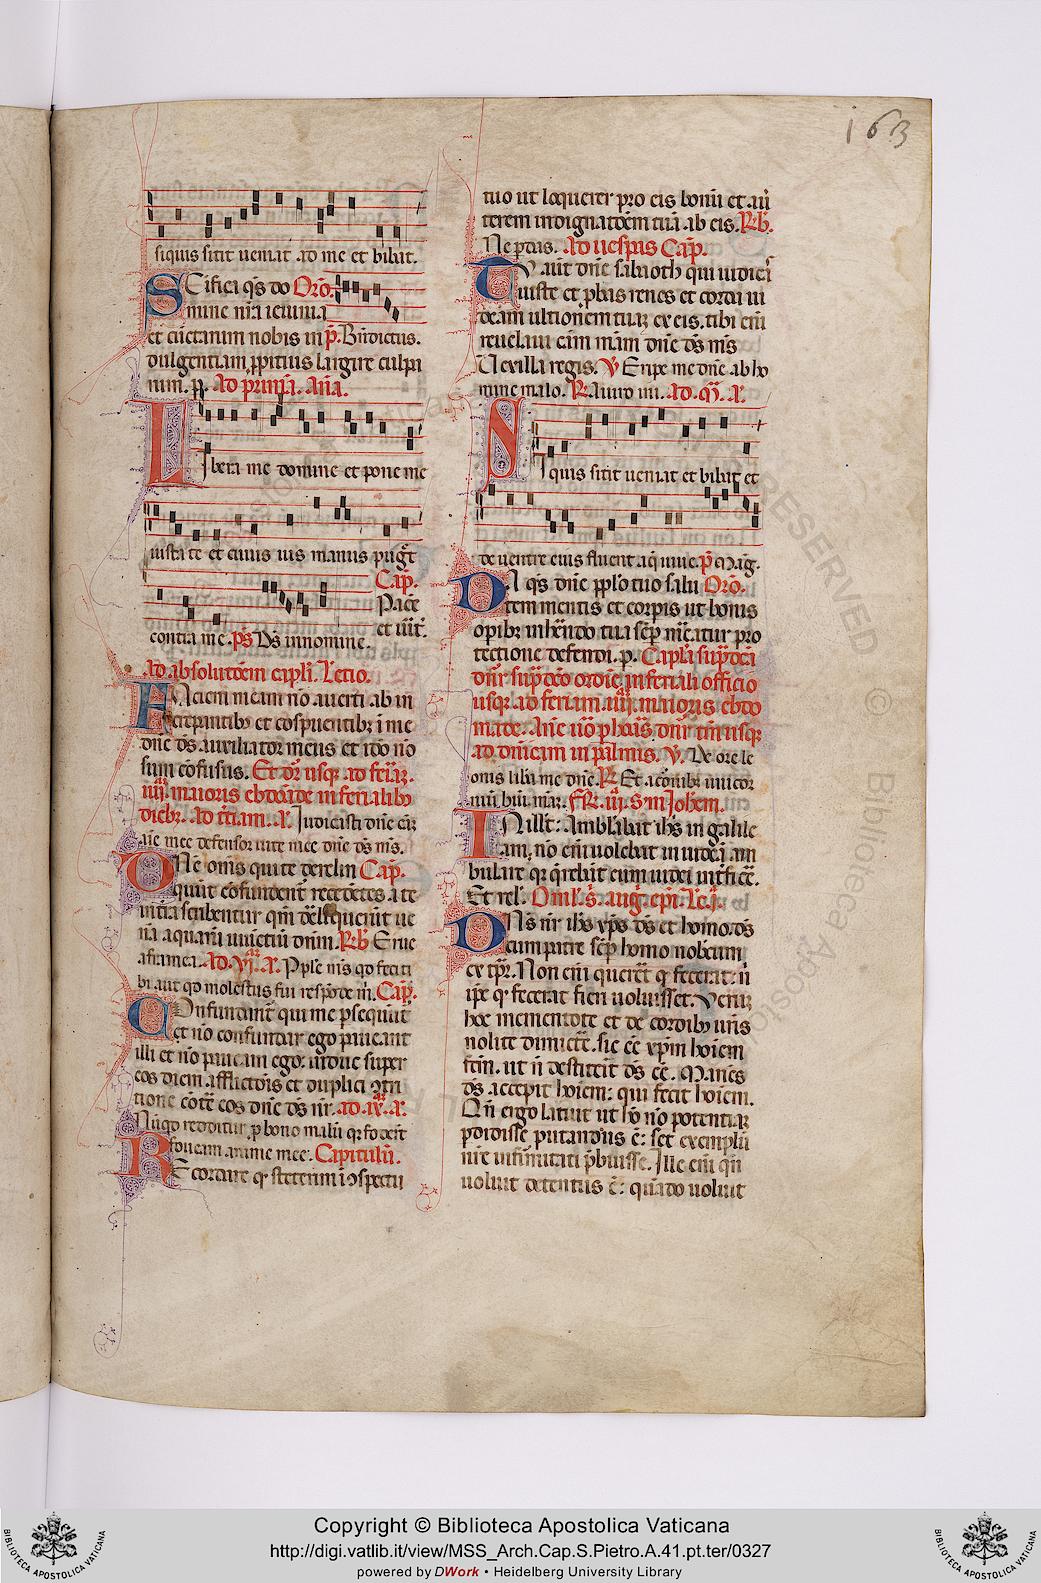 163
siquis sitit ueniat ad me et bibat.
Sc̄ifica q̄s dn̄e Or̄o.
nr̄a ieiunia
et cūctarum nobis in p̄. Bn̄dictus.
dulgentiam ꝓpitius largire culpa
rum. p. Ad primā. An̄a.
Libera me domine et pone me
iuxta te et cuius uis manus pugn̄t
Cap̄.
Pacē
et uit̄.
contra me. p̄s Ds̄ in nomine.
Ad absolutōem cap̄li. Lectio.
Faciem meam nō auerti ab in
crepantibꝫ et cōspuentibꝫ ī me
dn̄s ds̄ auxiliator meus et ido nō
sum cōfusus. Et dr̄ usqꝫ ad feriā
iiij maioris ebdomade in ferialibꝫ
diebꝫ. Ad t̄tiam. A. Iudicasti dn̄e cā
aīe mee defensor uite mee dn̄e ds̄ ms̄.
Dn̄e om̄s qui te derelin Cap̄.
quūt cōfundent̄ recedētes a te
in terra scribentur qm̄ dereliquerūt ue
nā aquarū uiuentiū dn̄m. Rb̄ Erue
a framea. Ad vj. A. Pople ms̄ qd feci ti
bi aut qd molestus fui respōde m̄. Cap̄.
Confundant̄ qui me ꝑsequūt̄
et nō confundar ego paueant
illi et nō paueam ego: induc super
eos diem afflictōis et duplici ↄtri
tione cōtere eos dn̄e ds̄ nr̄. ad ix. A.
Nūqd redditur ꝓ bono malū qꝫ foderūt
foueam anime mee. Capitulū.
Recordare qꝫ steterim ī ↄspectu
tuo ut loquerer pro eis bonū et au̅
terem indignatōem tuā ab eis. Rb̄.
Ne perdas. Ad uesperas Cap̄.
Tu aūt dn̄e sabaoth qui iudicas
iuste et ꝓbas renes et corda ui
deam ultionem tuā ex eis. tibi en̄
reuelaui cām meam dn̄e ds̄ ms̄
Vexilla regis. V Eripe me dn̄e ab ho
mine malo. R. A uiro in. ad. m̄. A.
Siquis sitit ueniat et bibat et
de uentre eius fluent aq̄ uiue. p̄ Mag.
Da q̄s dn̄e pplo tuo salu Or̄o.
tem mentis et corpis ut bonis
opibꝫ inherēdo tua sēp mereatur pro
tectione defendi. p. Cap̄la sup̄dc̄a
dn̄r sup̄dc̄o ordīe in feriali officio
usqꝫ ad feriam iiij maioris ebdo
made. An̄e uō pō laudes dn̄r tm̄ usqꝫ
ad dn̄icam in palmis. V. De ore le
onis libera me dn̄e. R. Et a cornibꝫ unicor
niū hūi. mā. Fr̄. iij. S̄m Iohem.
In illt: Ambulabat ihs̄ in galile
am; nō en̄i uolebat in iudeā am
bulare qꝫ q̄rebāt eum iudei int̄ficē.
Et rel. Omel. s. aug. epi. Lc̄. j.
Dn̄s nr̄ ihs̄ xp̄s ds̄ et homo. ds̄
cum patre sēp homo nobcum
ex tp̄r. Non en̄i quereret qꝫ fecerat. n̄
ip̄e qꝫ fecerat fieri uoluisset. Verūꝫ
hoc mementote et de cordibꝫ ur̄is
nolite dimictē. sic cē xp̄m hoīem
fctm̄. ut n̄ destiterit ds̄ cē. Manēs
ds̄ accepit hoīem: qui fecit hoīem.
Qn̄ ergo latuit ut hō nō potentiā
pdidisse putandus ē: set exemplū
nr̄e infirmitati p̄buisse. Ille en̄i qn̄
uoluit detentus ē: quādo uoluit
RESERVED © Biblioteca Apostolica
Copyright © Biblioteca Apostolica Vaticana
http://digi.vatlib.it/view/MSS_Arch.Cap.S.Pietro.A.41.pt.ter/0327
powered by DWork • Heidelberg University Library
BIBLIOTECA APOSTOLICA VATICANA
BIBLIOTECA APOSTOLICA VATICANA